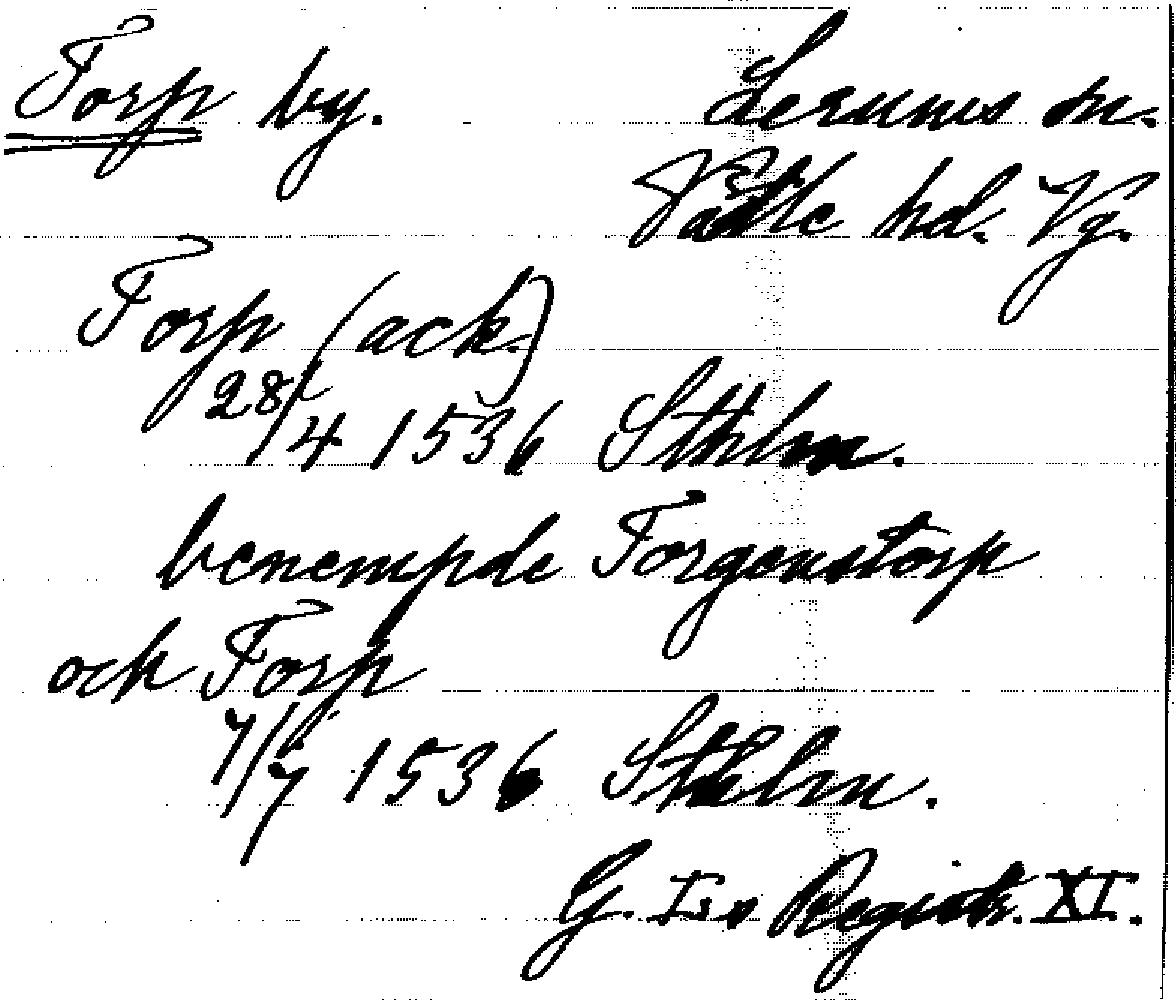 Torp by.
Lerums sn.
Vättle hd. Vg.
Torp (ack.)
28/4 1536 Sthlm.
benempde Torgenstorp
och Torp
7/7 1536 Sthlm.
G. I:s Registr. XI.